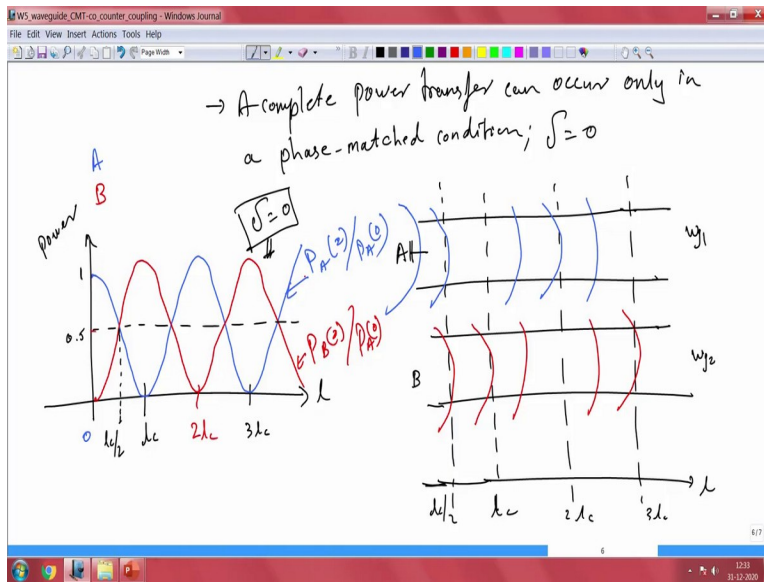 W5_waveguide_CMT-co_counter_coupling - Windows Journal
File Edit View Insert Actions Tools Help
Page Width
→ A complete power transfer can occur only in
a phase-matched condition; δ=0
A
B
power
δ=0
1
0.5
P_A(z)/P_A(0)
P_B(z)/P_A(0)
0 lc/2 lc 2lc 3lc
l
A
wg1
B
wg2
lc/2 lc 2lc 3lc
l
6/7
6
12:33
31-12-2020